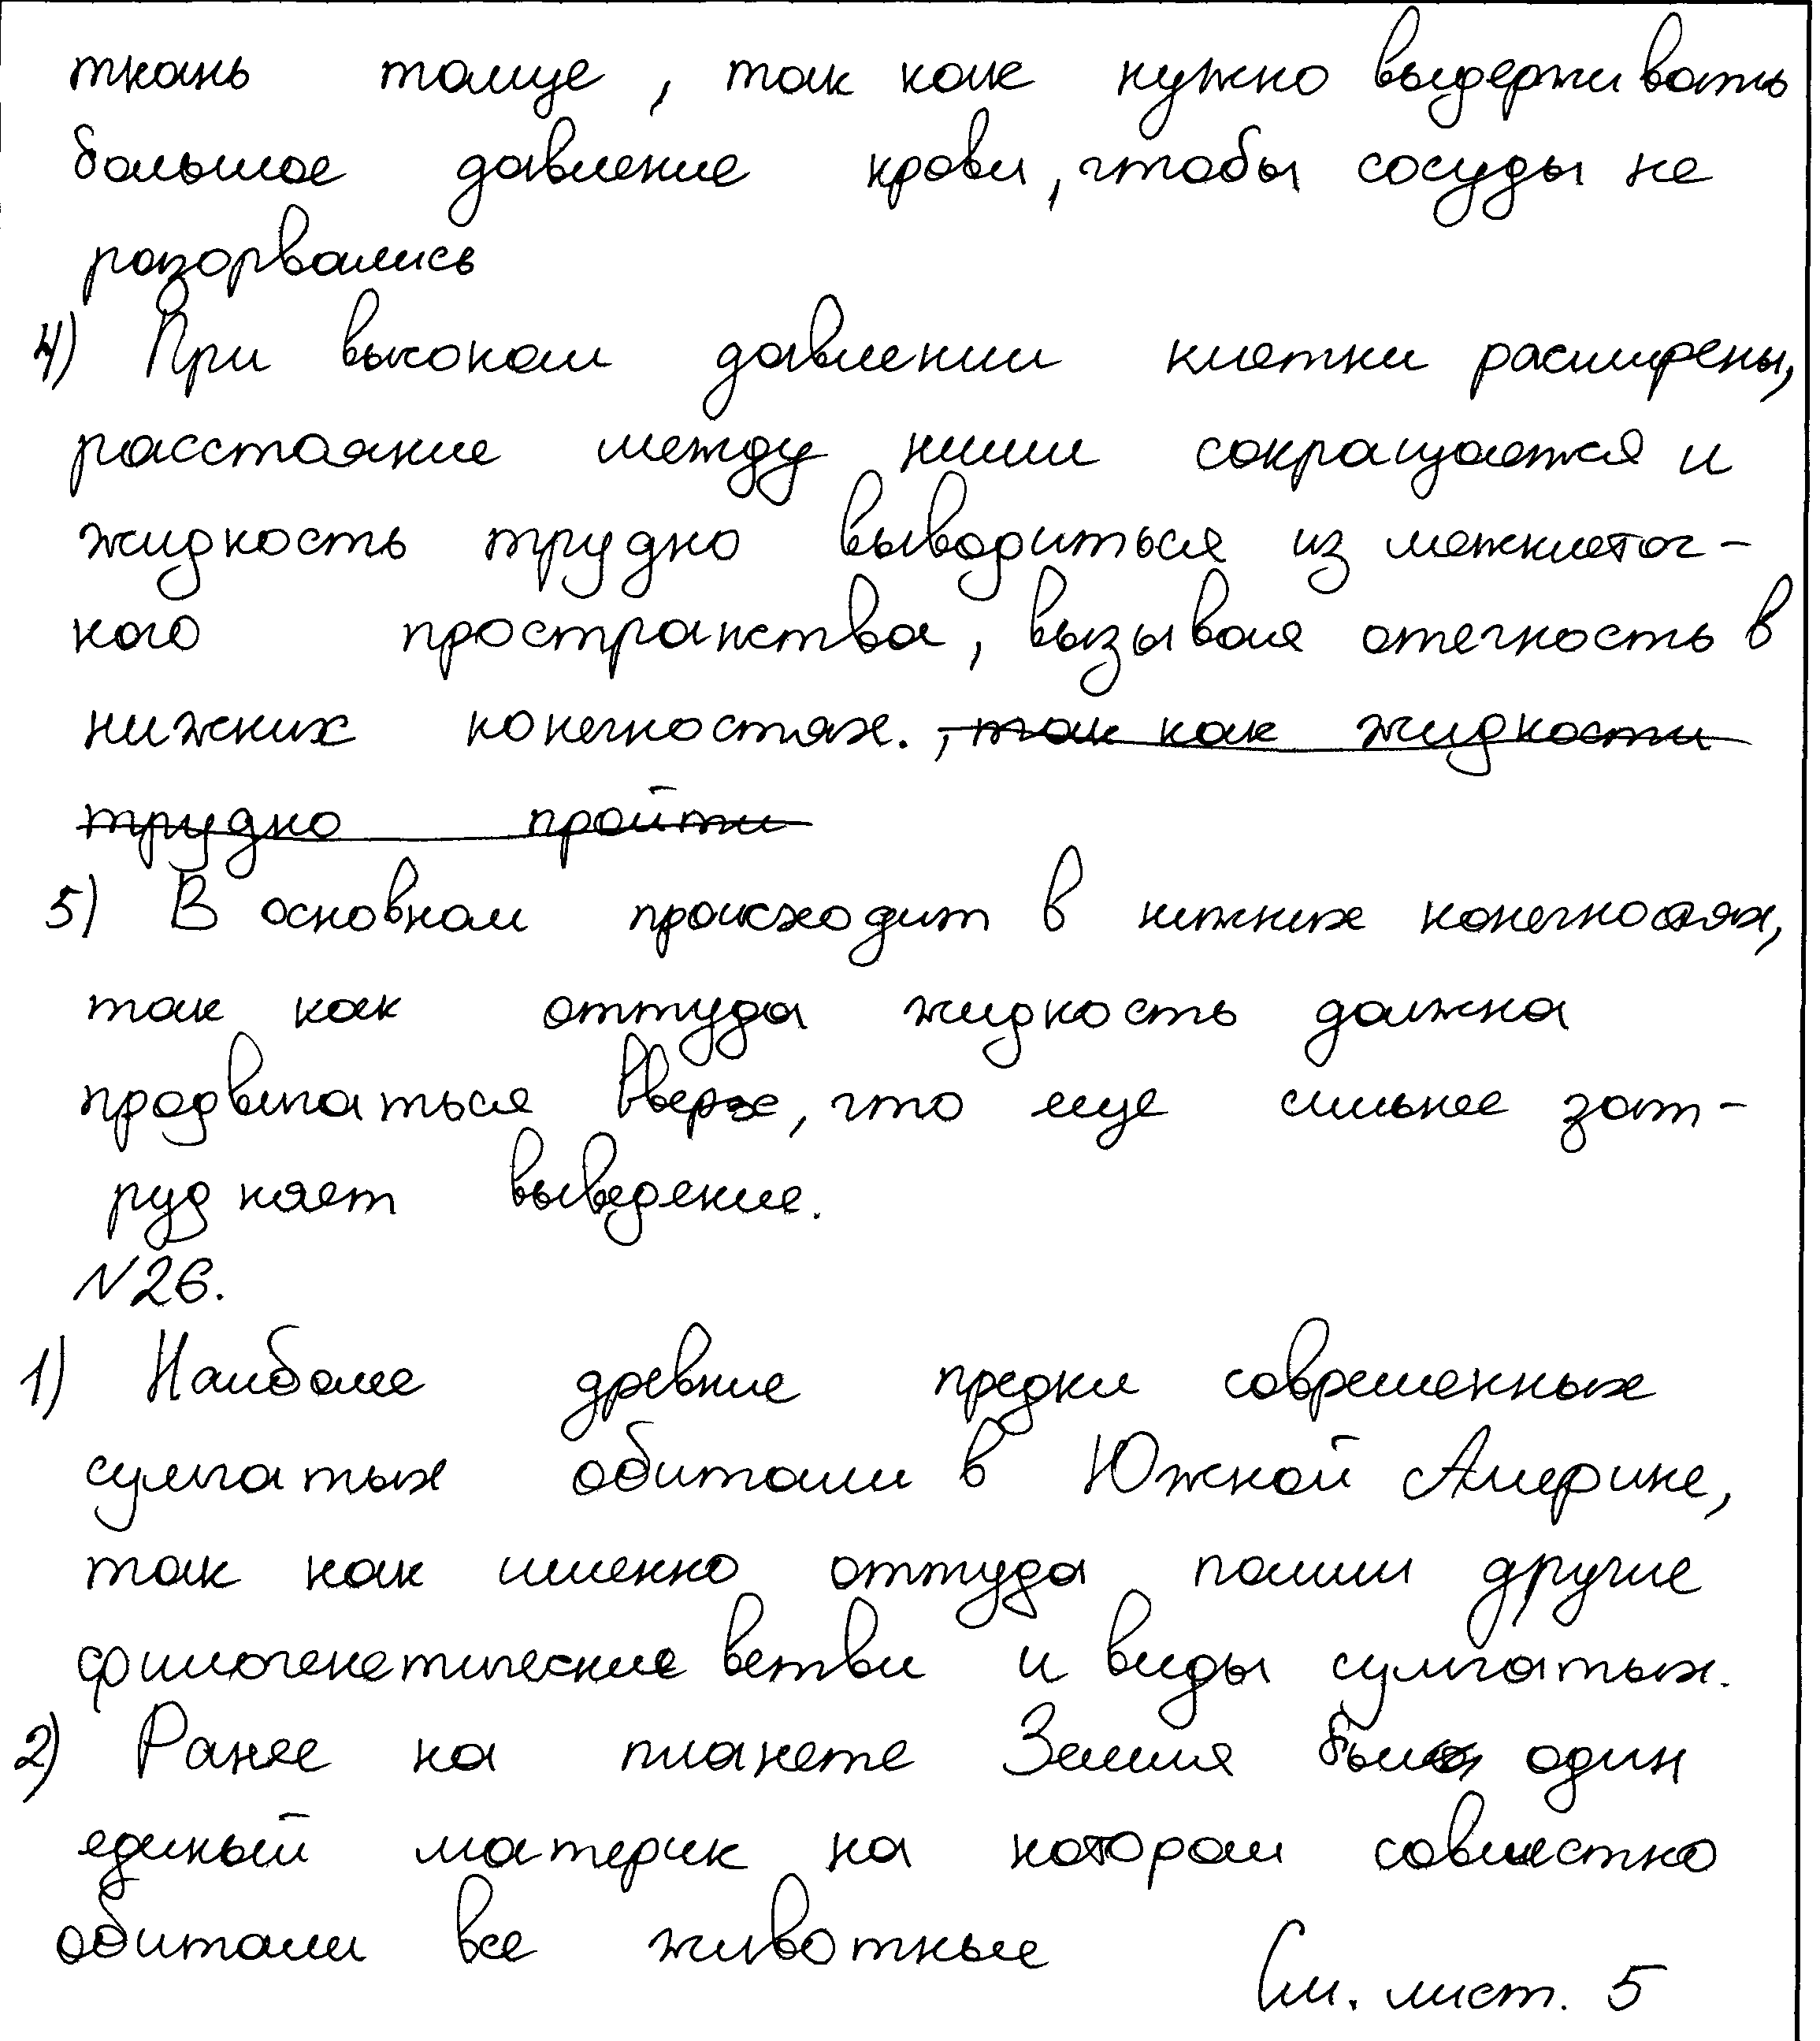 ткань толще, так как нужно выдерживать
большое давление крови, чтобы сосуды не
разорвались
4) При высоком давлении клетки расширены,
расстояние между ними сокращается и
жидкость трудно выводиться из межклеточ-
ного пространства, вызывая отечность в
нижних конечностях. , так как жидкости
трудно пройти
5) В основном происходит в нижних конечностях,
так как оттуда жидкость должна
продвигаться вверх, что еще сильнее зат-
рудняет выведение.
N26.
1) Наиболее древние предки современных
сумчатых обитали в Южной Америке,
так как именно оттуда пошли другие
филогенетические ветви и виды сумчатых.
2) Ранее на планете Земля был один
единый материк на котором совместно
обитали все животные
См. лист. 5